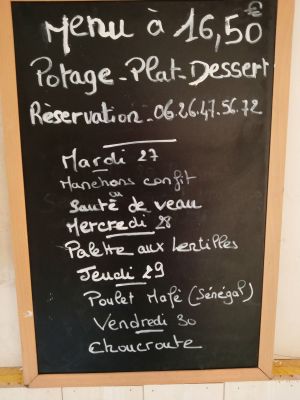 Menu à 16,50€
Potage - Plat - Dessert
Rèservation - 06.26.47.56.72
Mardi 27
Manchons confit
ou
Sauté de veau
Mercredi 28
Palette aux lentilles
Jeudi 29
Poulet Mafé (Sénégal)
Vendredi 30
Choucroute